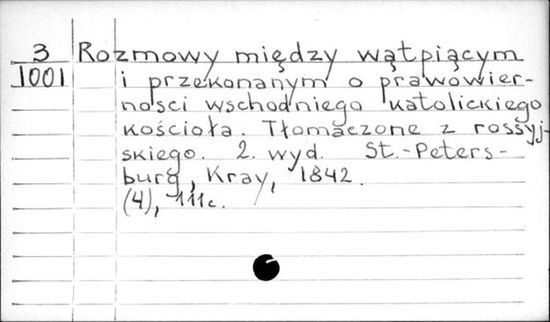 3 Rozmowy między wątpiącym
1001 i przekonanym o prawowier-
ności wschodniego katolickiego
kościoła. Tłomaczone z rossyj-
skiego. 2. wyd. St.-Peters-
burg, Kray, 1842.
(4), 111c.